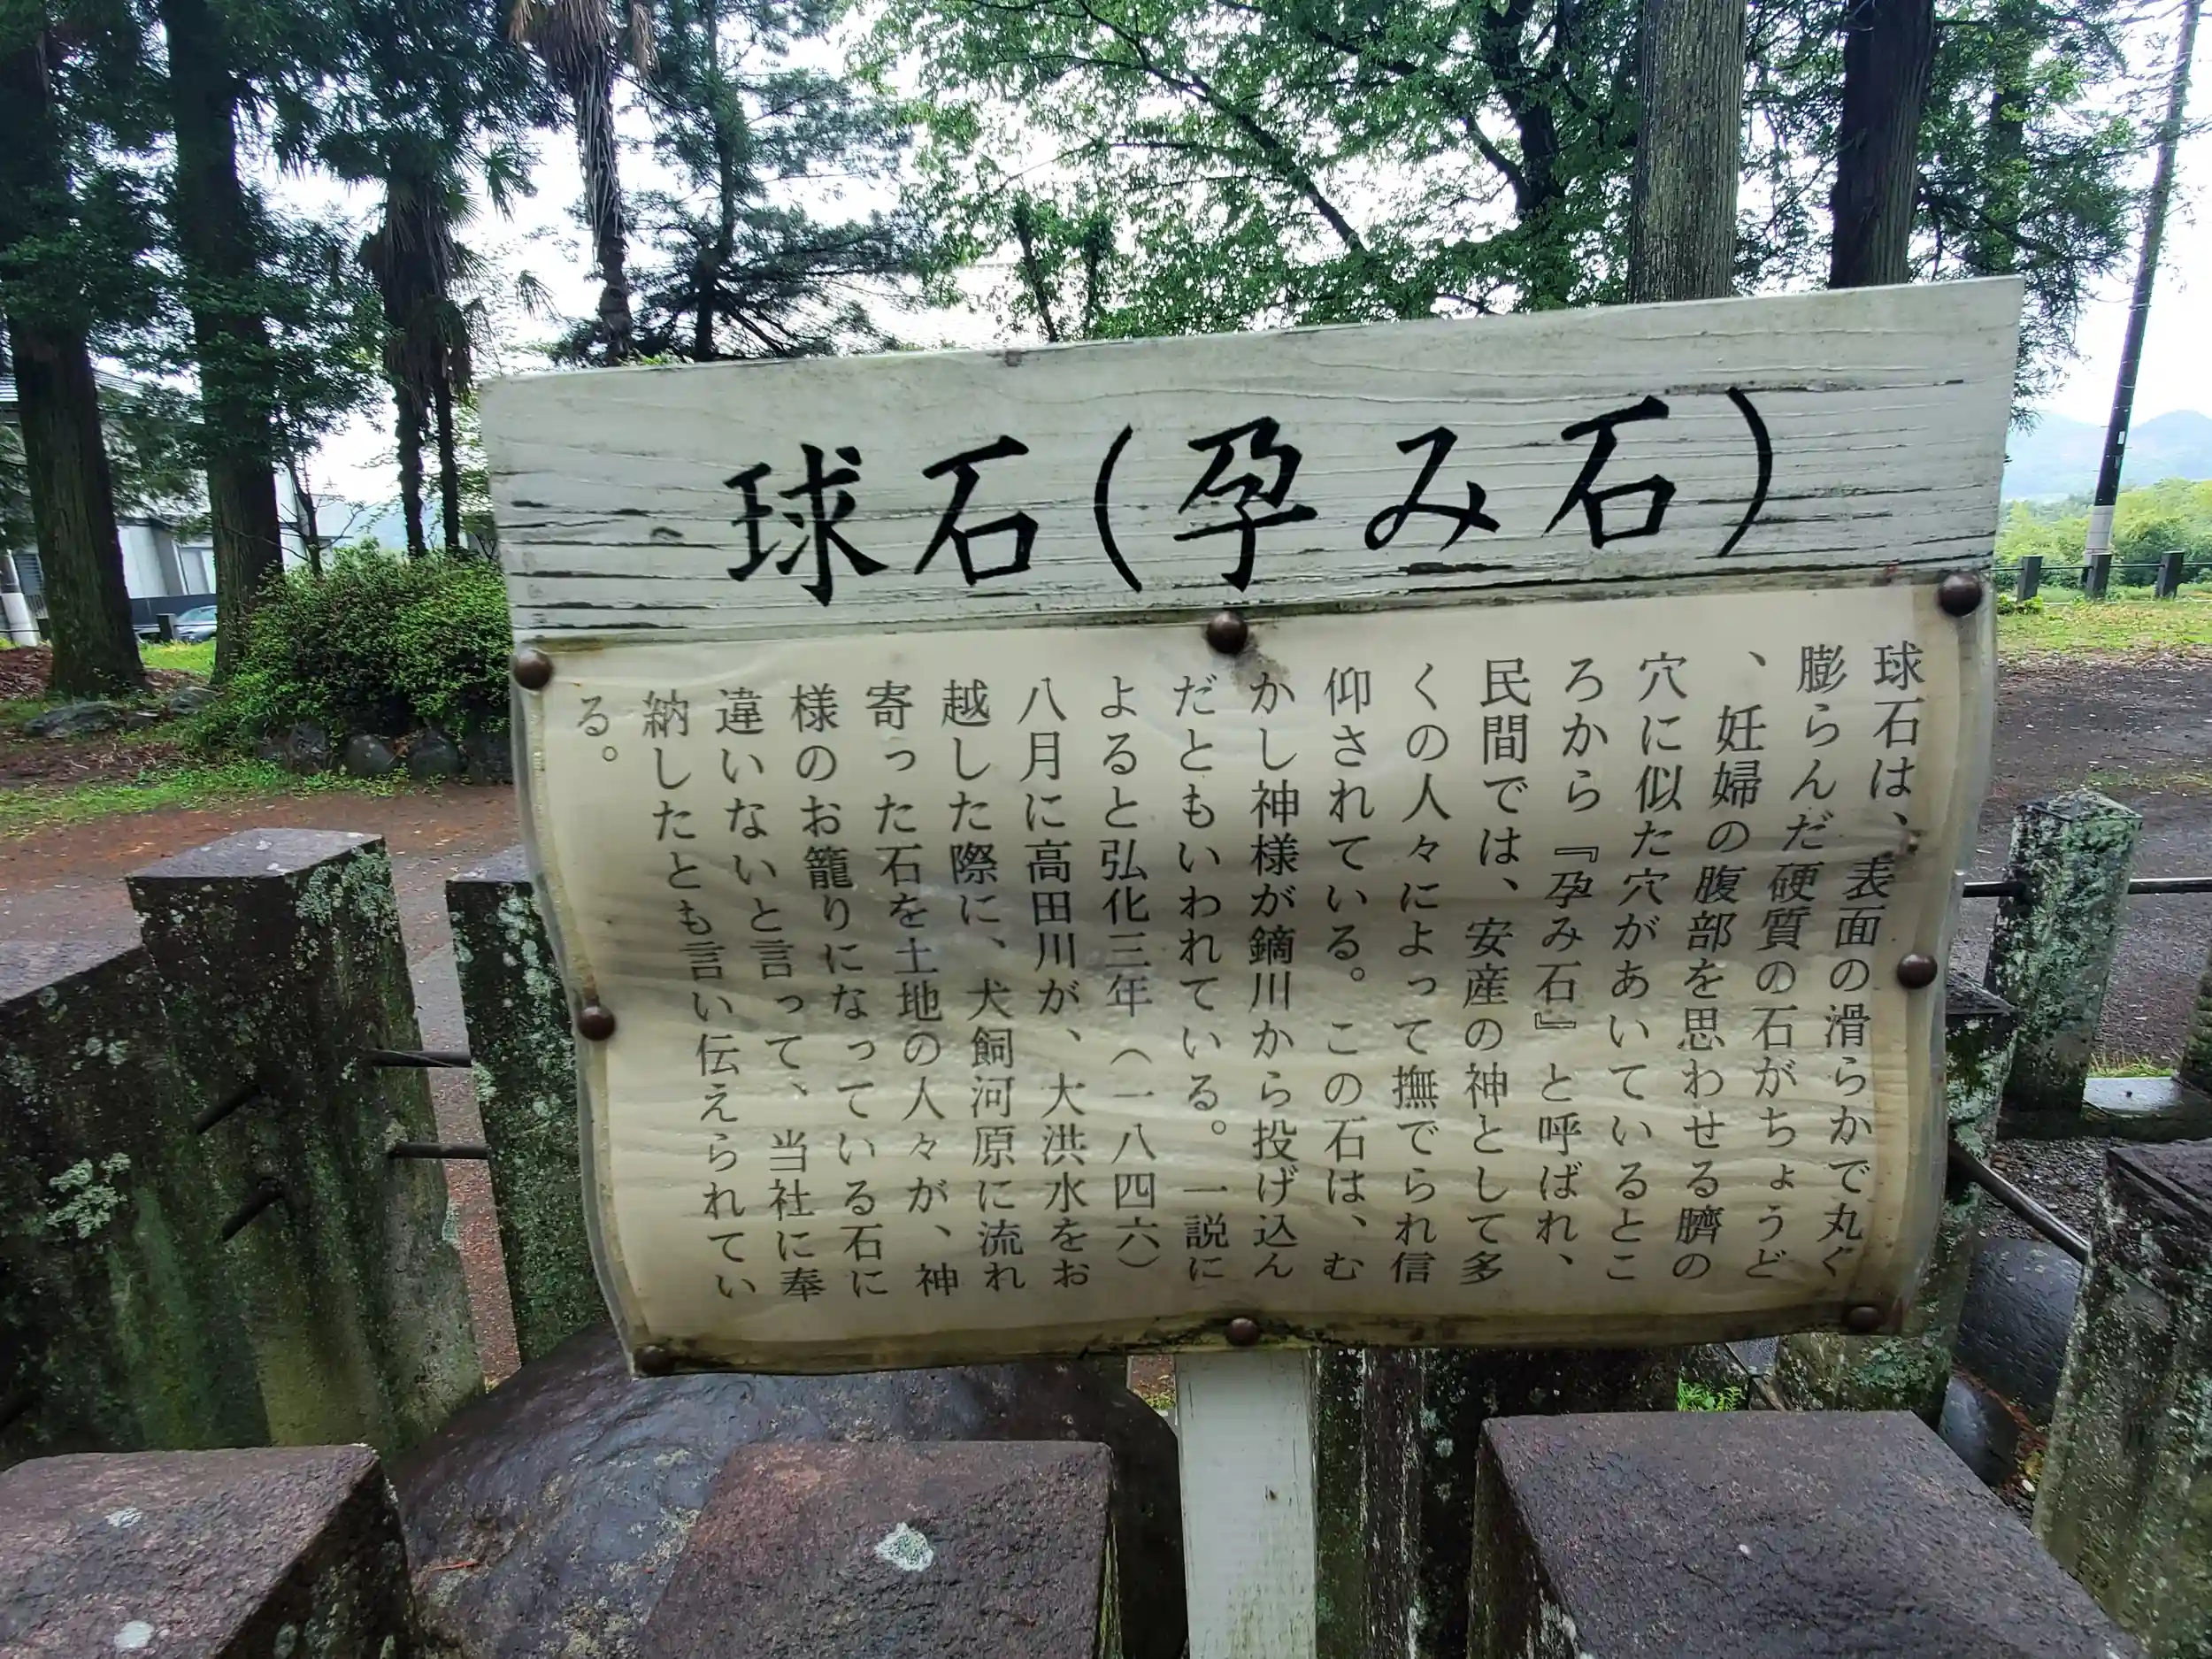 球石(孕み石)
球石は、表面の滑らかで丸く
膨らんだ硬質の石がちょうど
、妊婦の腹部を思わせる臍の
穴に似た穴があいているとこ
ろから『孕み石』と呼ばれ、
民間では、安産の神として多
くの人々によって撫でられ信
仰されている。この石は、む
かし神様が鏑川から投げ込ん
だともいわれている。一説に
よると弘化三年(一八四六)
八月に高田川が、大洪水をお
越した際に、犬飼河原に流れ
寄った石を土地の人々が、神
様のお籠りになっている石に
違いないと言って、当社に奉
納したとも言い伝えられてい
る。